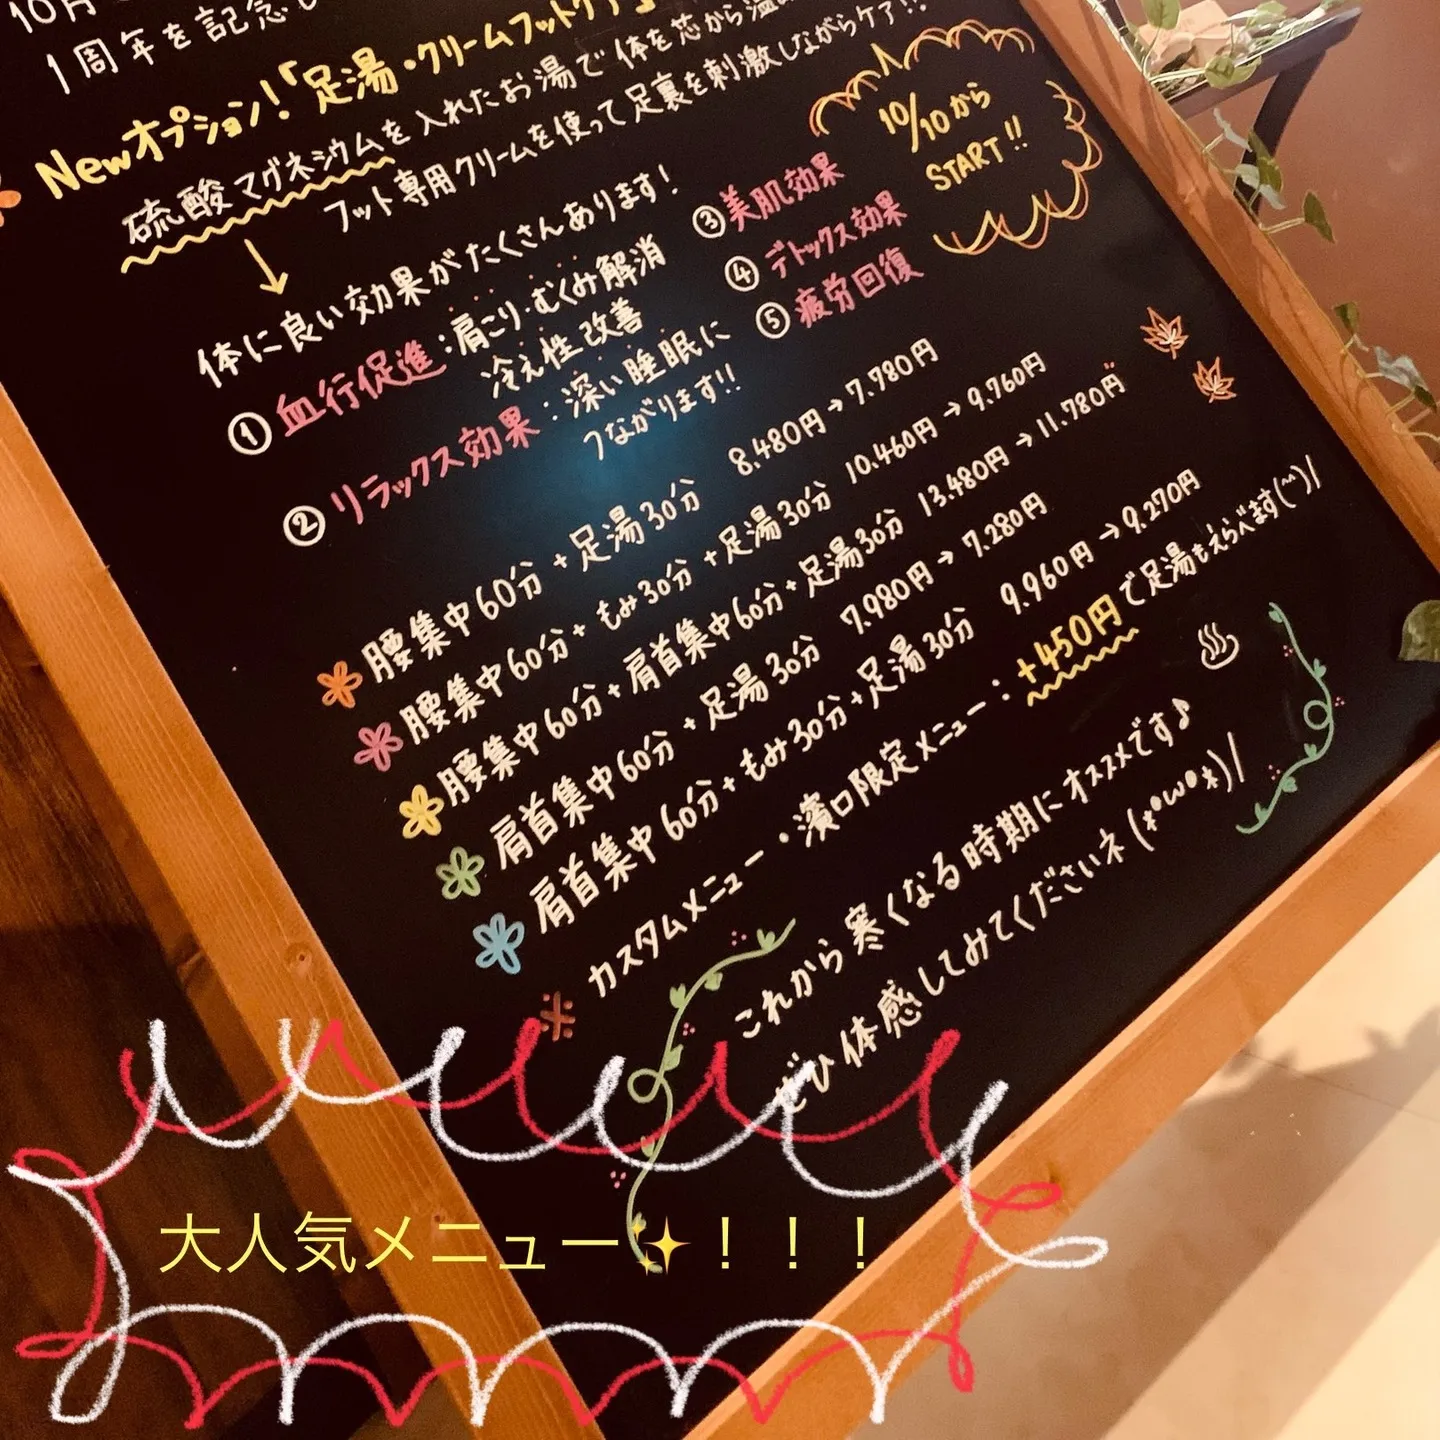 10月
1周年を記念し
Newオプション!「足湯・クリームフットケア」
硫酸マグネシウムを入れたお湯で体を芯から温め
フット専用クリームを使って足裏を刺激しながらケア!!
10/10から
START!!
体に良い効果がたくさんあります!
①血行促進:肩こり・むくみ解消
冷え性改善
②リラックス効果:深い睡眠に
つながります!!
③美肌効果
④デトックス効果
⑤疲労回復
腰集中60分+足湯30分 8.480円→7.780円
腰集中60分+もみ30分+足湯30分 10.460円→9.760円
腰集中60分+肩首集中60分+足湯30分 13.480円→11.780円
肩首集中60分+足湯30分 7.980円→7.280円
肩首集中60分+もみ30分+足湯30分 9.960円→9.270円
※カスタムメニュー・濱口限定メニュー:+450円で足湯もえらべます(^^)/
これから寒くなる時期にオススメです♪
ぜひ体感してみてくださいネ(*°ω°*)/
大人気メニュー✨!!!